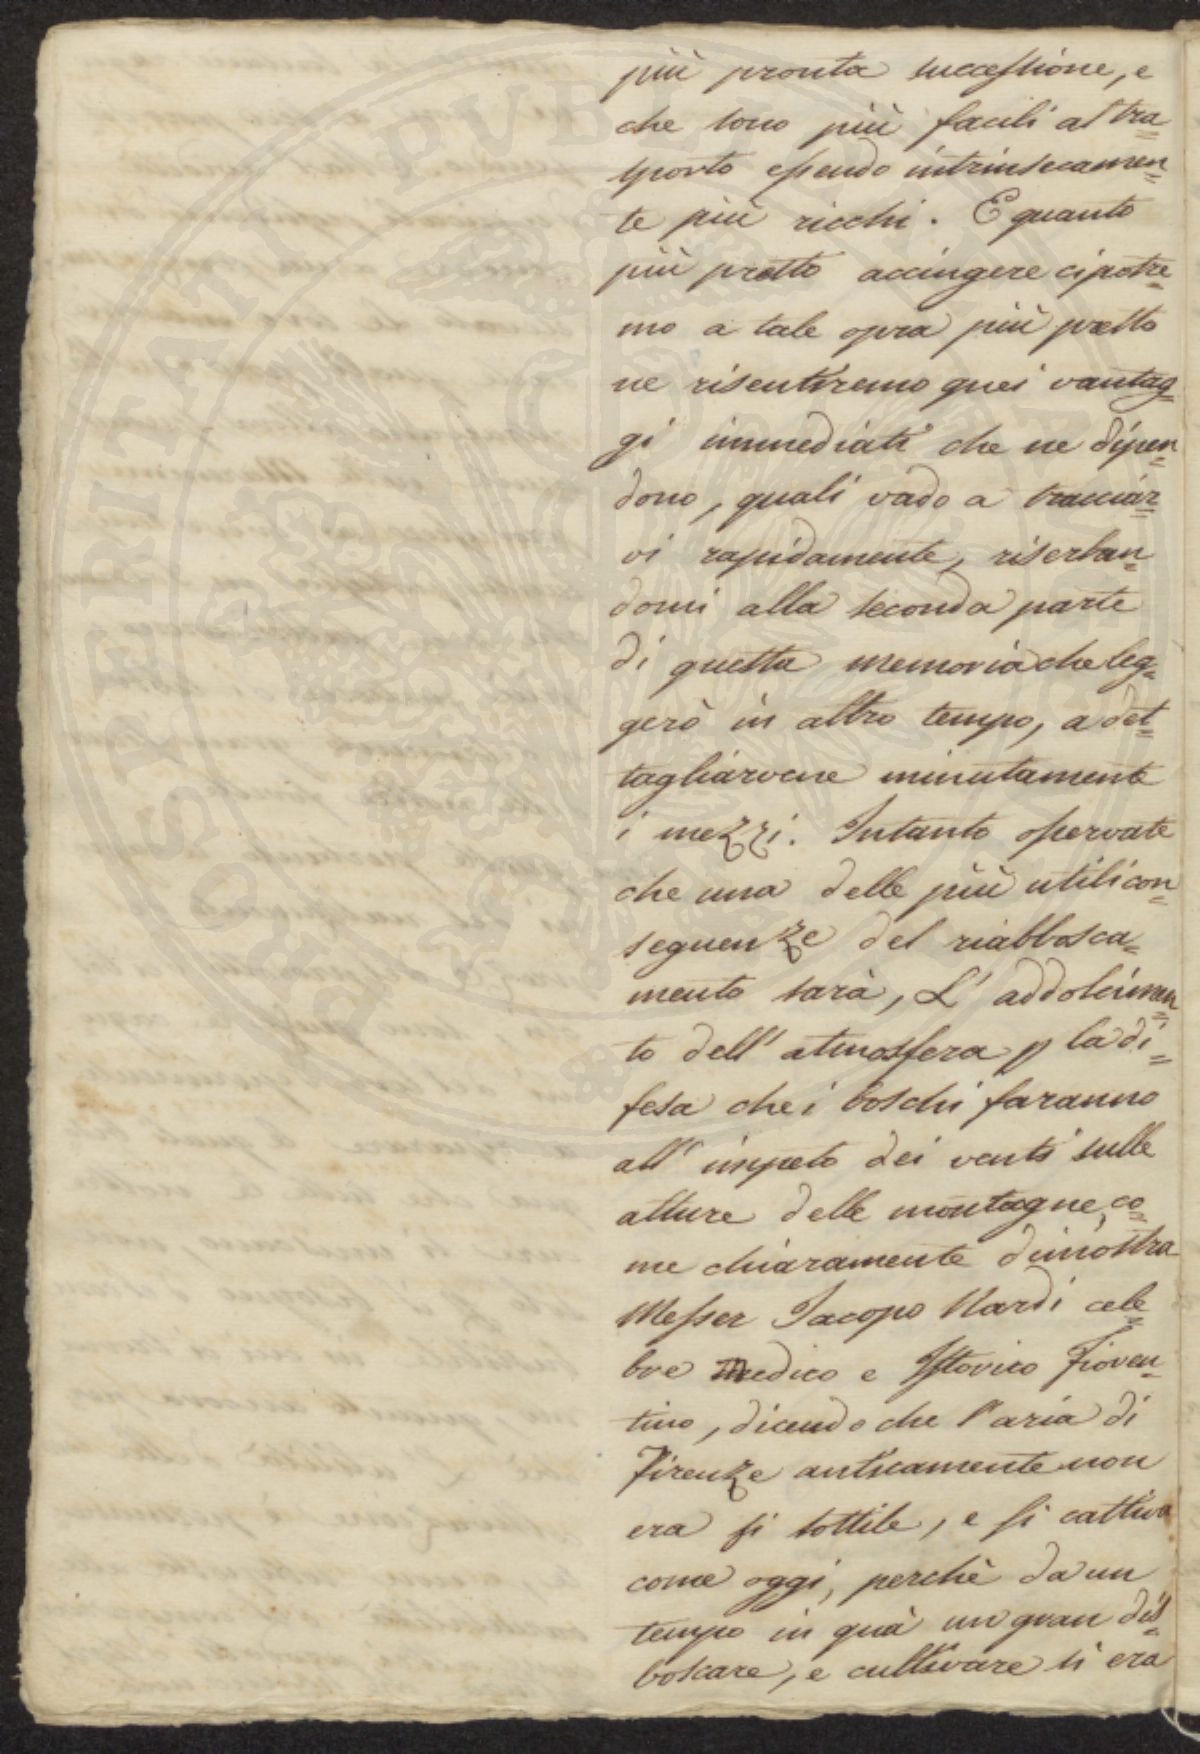 più pronta successione, e
che sono più facili al tra=
sporto essendo intrinsecamen=
te più ricchi. E quanto
più presto accingere ci potre=
mo a tale opra più presto
ne risentiremo quei vantag=
gi immediati che ne dipen=
dono, quali vado a tracciar=
vi rapidamente, riserban=
domi alla seconda parte
di questa memoria che leg=
gerò in altro tempo, a det=
tagliarvene minutamente
i mezzi. Intanto osservate
che una delle più utili con=
seguenze del riabbosca=
mento sarà, L' addolcimen=
to dell' atmosfera p la di=
fesa che i boschi faranno
all' impeto dei venti sulle
alture delle montagne, co=
me chiaramente dimostra
Messer Jacopo Nardi cele=
bre Medico e Istorico Fioren=
tino, dicendo che l'aria di
Firenze anticamente non
era si sottile, e si cattiva
come oggi, perchè da un
tempo in quà un gran dis=
boscare, e cultivare si era
PROSPERITATI PVBLICAE